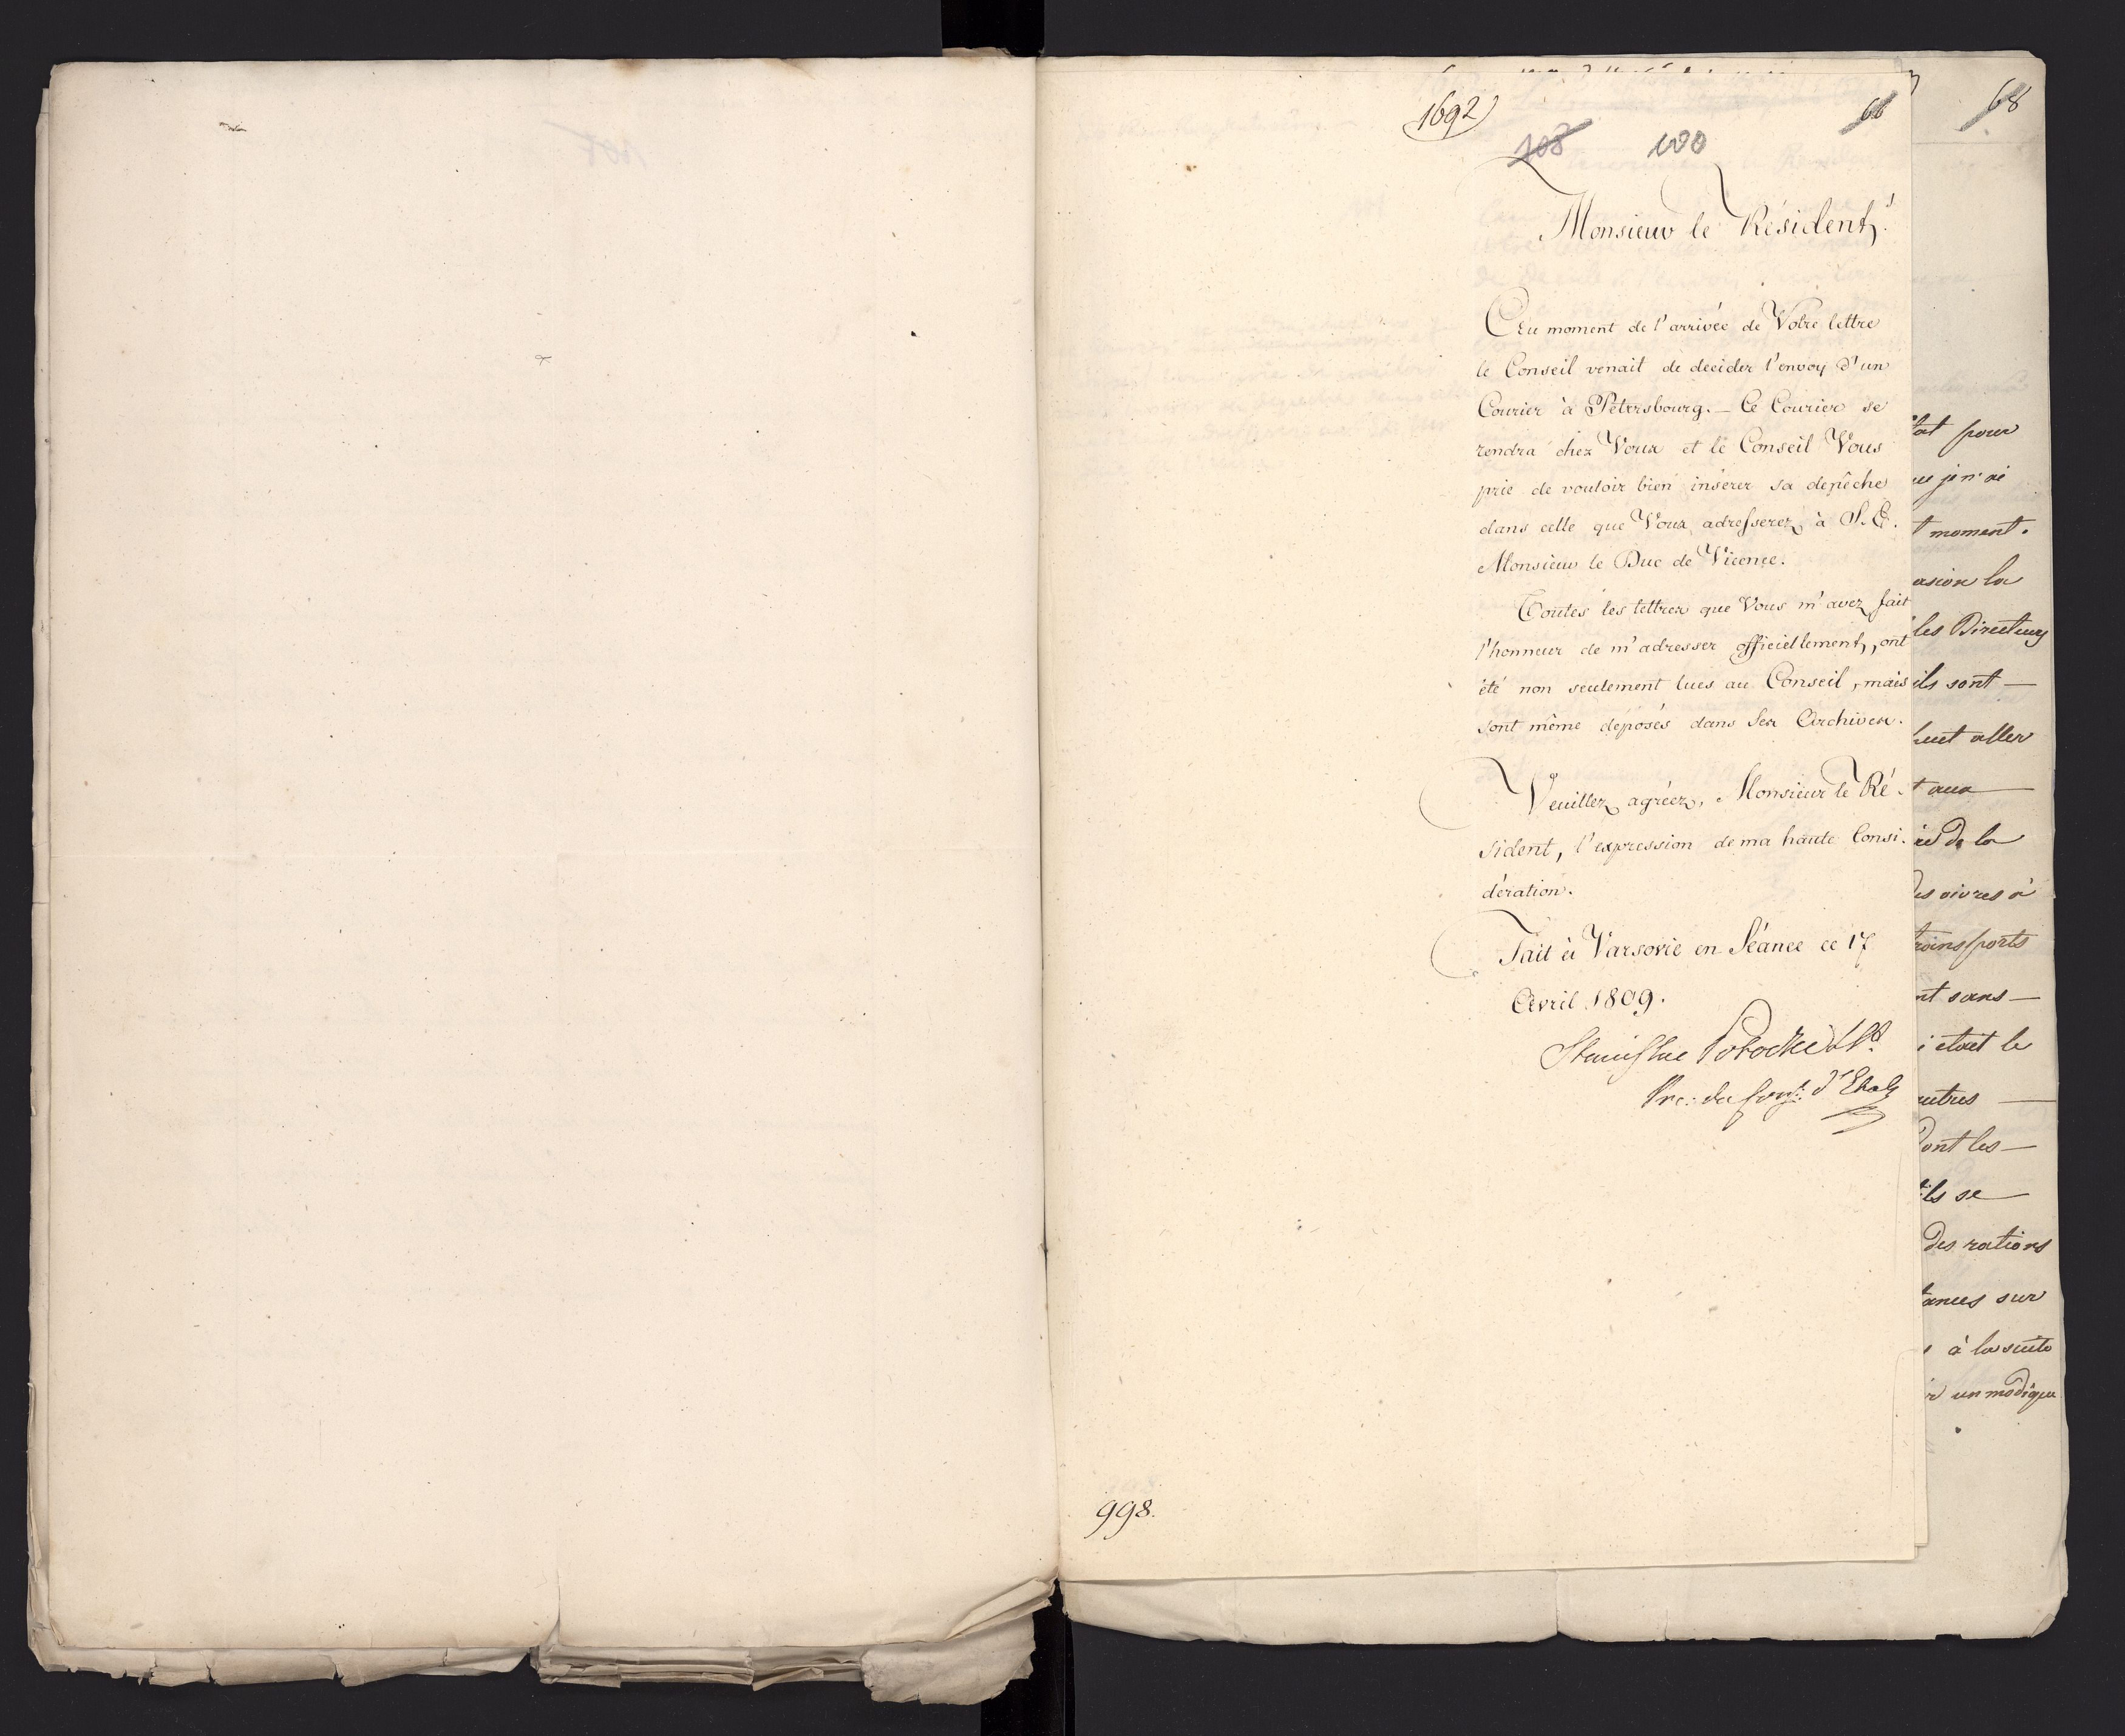 1692
66
108
100
Monsieur le Résident,
Au moment de l'arrivée de Votre lettre
le Conseil venait de decider l'envoy d'un
Courier à Pétersbourg. — Ce Courier se
rendra chez Vous et le Conseil Vous
prie de vouloir bien insérer sa depêche
dans celle que Vous adresserez à S. E.
Monsieur le Duc de Vicence.
Toutes les lettres que Vous m'avez fait
l'honneur de m'adresser officiellement, ont
été non seulement lues au Conseil, mais
sont même déposés dans Ses Archives.
Veuillez agréez, Monsieur le Ré-
sident, l'expression de ma haute Consi-
dération.
Fait à Varsovie en Séance ce 17
Avril 1809.
Stanislas Potocki
Pré: du Cons: d'Etat
998.
68
tat pour
ue je n'ai
t moment.
asion la
les Directeurs
ils sont —
aller
t aux
de la
vivres à
transports
nt sans —
i etoit le
autres —
Dont les —
ils se
des rations
tances sur
à la suite
r un modique